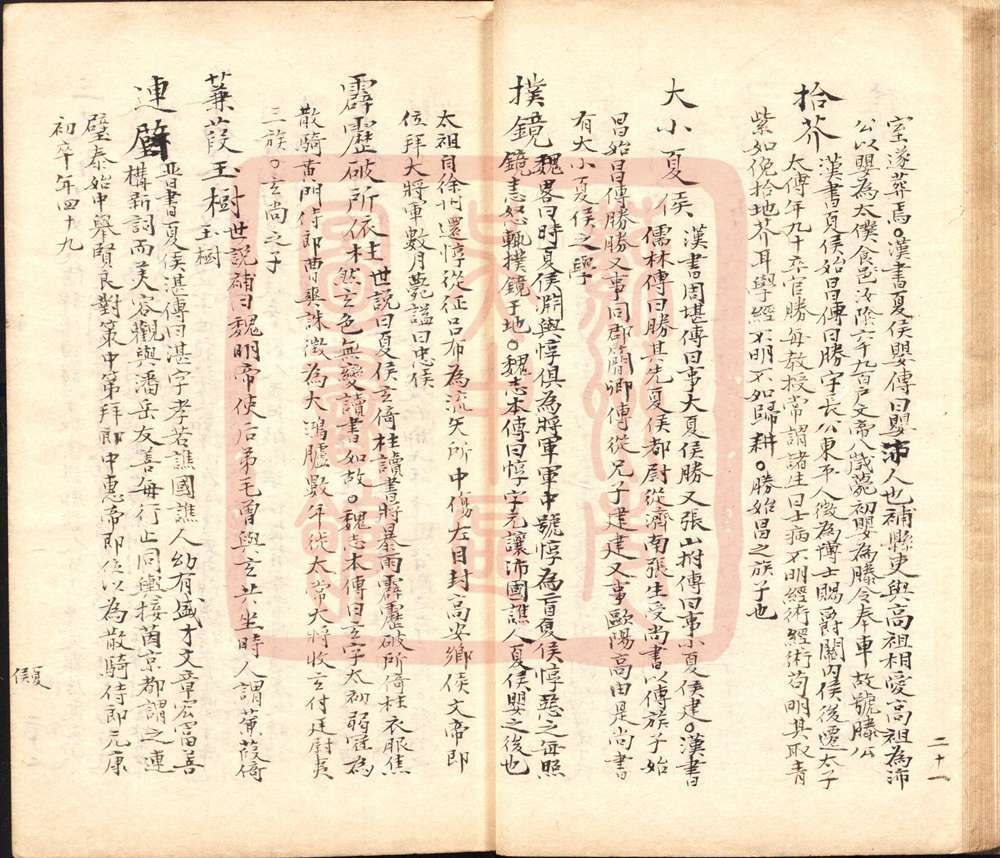 室遂葬焉。漢書夏侯嬰傳曰嬰沛人也補縣吏與高祖相愛高祖為沛
公以嬰為太僕食邑汝陰六千九百戶文帝八歲薨初嬰為滕令奉車故號滕公
拾芥
漢書夏侯始昌傳曰勝字長公東平人徵為博士賜爵關內侯後遷太子
太傅年九十卒官勝每教授常謂諸生曰士病不明經術經術苟明其取青
紫如俛拾地芥耳學經不明不如歸耕。勝始昌之族子也
大小夏侯
漢書周堪傳曰事大夏侯勝又張山拊傳曰事小夏侯建。漢書
儒林傳曰勝其先夏侯都尉從濟南張生受尚書以傳族子始
昌始昌傳勝勝又事同郡簡卿傳從兄子建建又事歐陽高由是尚書
有大小夏侯之學
撲鏡
魏畧曰時夏侯淵與惇俱為將軍軍中號惇為盲夏侯惇惡之每照
鏡恚怒輒撲鏡于地。魏志本傳曰惇字元讓沛國譙人夏侯嬰之後也
太祖自徐州還惇從征呂布為流矢所中傷左目封高安鄉侯文帝即
位拜大將軍數月薨謚曰忠侯
霹靂破所依柱
世說曰夏侯玄倚柱讀書時暴雨霹靂破所倚柱衣服焦
然玄色無變讀書如故。魏志本傳曰玄字太初弱冠為
散騎黃門侍郎曹爽誅徵為大鴻臚數年徙太常大將收玄付廷尉夷
三族。玄尚之子
蒹葭玉樹
世說補曰魏明帝使后弟毛曾與玄共坐時人謂蒹葭倚
玉樹
連璧
晉書夏侯湛傳曰湛字孝若譙國譙人幼有盛才文章宏富善
構新詞而美容觀與潘岳友善每行止同輿接茵京都謂之連
璧泰始中舉賢良對策中第拜郎中惠帝即位以為散騎侍郎元康
初卒年四十九
二十一
夏侯